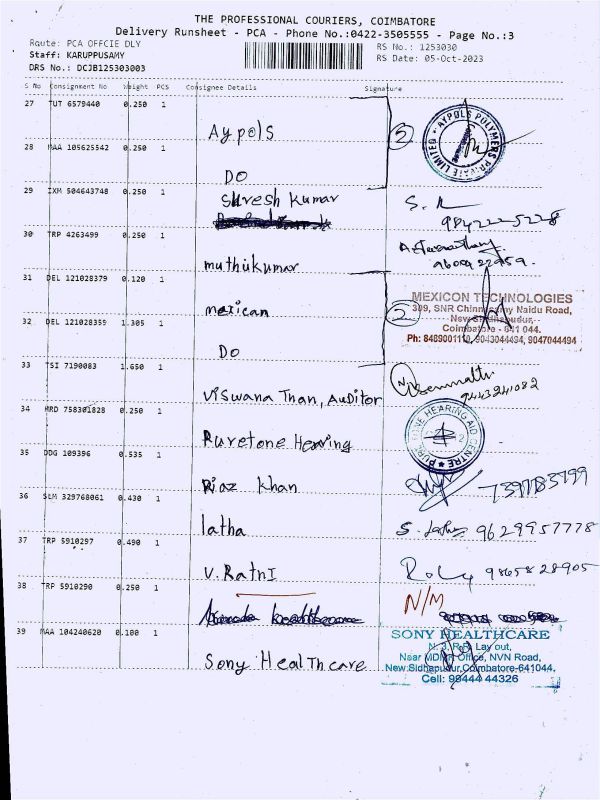 THE PROFESSIONAL COURIERS, COIMBATORE
Delivery Runsheet - PCA - Phone No.:0422-3505555 - Page No.:3
Route: PCA OFFCIE DLY
RS No.: 1253030
Staff: KARUPPUSAMY
RS Date: 05-Oct-2023
DRS No.: DCJB125303003
S No Consignment No Weight PCS Consignee Details Signature
27 TUT 6579440 0.250 1
Aypols
2
AYPOLS POLYMERS PRIVATE LIMITED
28 MAA 105625542 0.250 1
DO
29 IXM 504643748 0.250 1
Suresh Kumar
30 TRP 4263499 0.250 1
muthukumar
31 DEL 121028379 0.120 1
mexican
2
MEXICON TECHNOLOGIES
309, SNR Chinnasamy Naidu Road,
New Sidhapudur,
Coimbatore - 641 044.
Ph: 8489001110, 9043044494, 9047044494
32 DEL 121028359 1.305 1
DO
33 TSI 7190083 1.650 1
Viswana Than, Auditor
9443241082
34 HRD 758301828 0.250 1
Puretone Hearing
PURETONE HEARING AID CENTRE
35 DDG 109396 0.535 1
Riaz Khan
36 SLM 329768061 0.430 1
latha
9629957778
37 TRP 5910297 0.490 1
V. Ratni
9865828905
38 TRP 5910290 0.250 1
N/M
39 MAA 104240620 0.100 1
Sony Healthcare
SONY HEALTHCARE
N. 3, R.R. Lay out,
Near MDMK Office, NVN Road,
New Sidhapudur, Coimbatore-641044.
Cell: 99444 44326